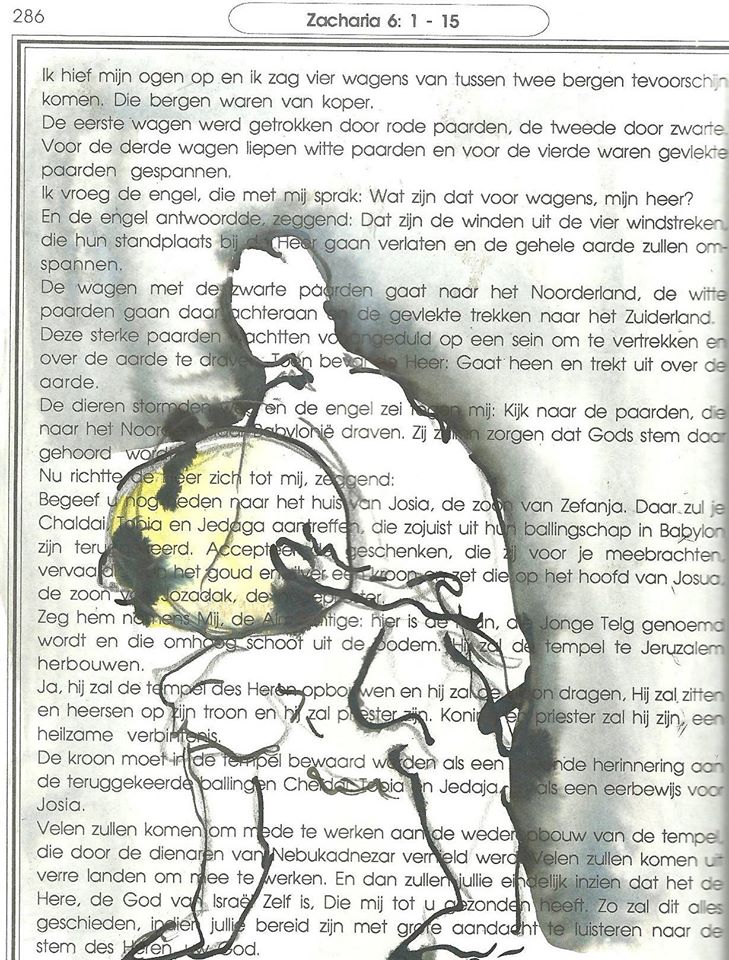 286
Zacharia 6: 1 - 15
Ik hief mijn ogen op en ik zag vier wagens van tussen twee bergen tevoorschijn
komen. Die bergen waren van koper.
De eerste wagen werd getrokken door rode paarden, de tweede door zwarte.
Voor de derde wagen liepen witte paarden en voor de vierde waren gevlekte
paarden gespannen.
Ik vroeg de engel, die met mij sprak: Wat zijn dat voor wagens, mijn heer?
En de engel antwoordde, zeggend: Dat zijn de winden uit de vier windstreken,
die hun standplaats bij de Heer gaan verlaten en de gehele aarde zullen om-
spannen.
De wagen met de zwarte paarden gaat naar het Noorderland, de witte
paarden gaan daar achteraan en de gevlekte trekken naar het Zuiderland.
Deze sterke paarden wachtten vol ongeduld op een sein om te vertrekken en
over de aarde te draven. Toen beval de Heer: Gaat heen en trekt uit over de
aarde.
De dieren stormden weg en de engel zei tegen mij: Kijk naar de paarden, die
naar het Babylonië draven. Zij zullen zorgen dat Gods stem daar
gehoord wordt.
Nu richtte de Heer zich tot mij, zeggend:
Begeef u nog heden naar het huis van Josia, de zoon van Zefanja. Daar zul je
Chaldai, Tobia en Jedaga aantreffen, die zojuist uit hun ballingschap in Babylon
zijn teruggekeerd. Accepteer de geschenken, die zij voor je meebrachten,
het goud en zilver een kroon en zet die op het hoofd van Josua,
de zoon van Jozadak, de
Zeg hem namens Mij, de Almachtige: hier is de man, die Jonge Telg genoemd
wordt en die omhoog schoot uit de bodem. Hij zal de tempel te Jeruzalem
herbouwen.
Ja, hij zal de tempel des Heren opbouwen en hij zal de kroon dragen, Hij zal zitten
en heersen op zijn troon en hij zal priester zijn. Koning en priester zal hij zijn, een
heilzame verbintenis.
De kroon moet in de tempel bewaard worden als een herinnering aan
de teruggekeerde ballingen Cheldai, Tobia en Jedaja, als een eerbewijs voor
Josia.
Velen zullen komen om mede te werken aan de wederopbouw van de tempel,
die door de dienaren van Nebukadnezar vernield werd. Velen zullen komen uit
verre landen om mee te werken. En dan zullen jullie eindelijk inzien dat het de
Here, de God van Israël Zelf is, Die mij tot u gezonden heeft. Zo zal dit alles
geschieden, indien jullie bereid zijn met grote aandacht te luisteren naar de
stem des Heren, uw God.